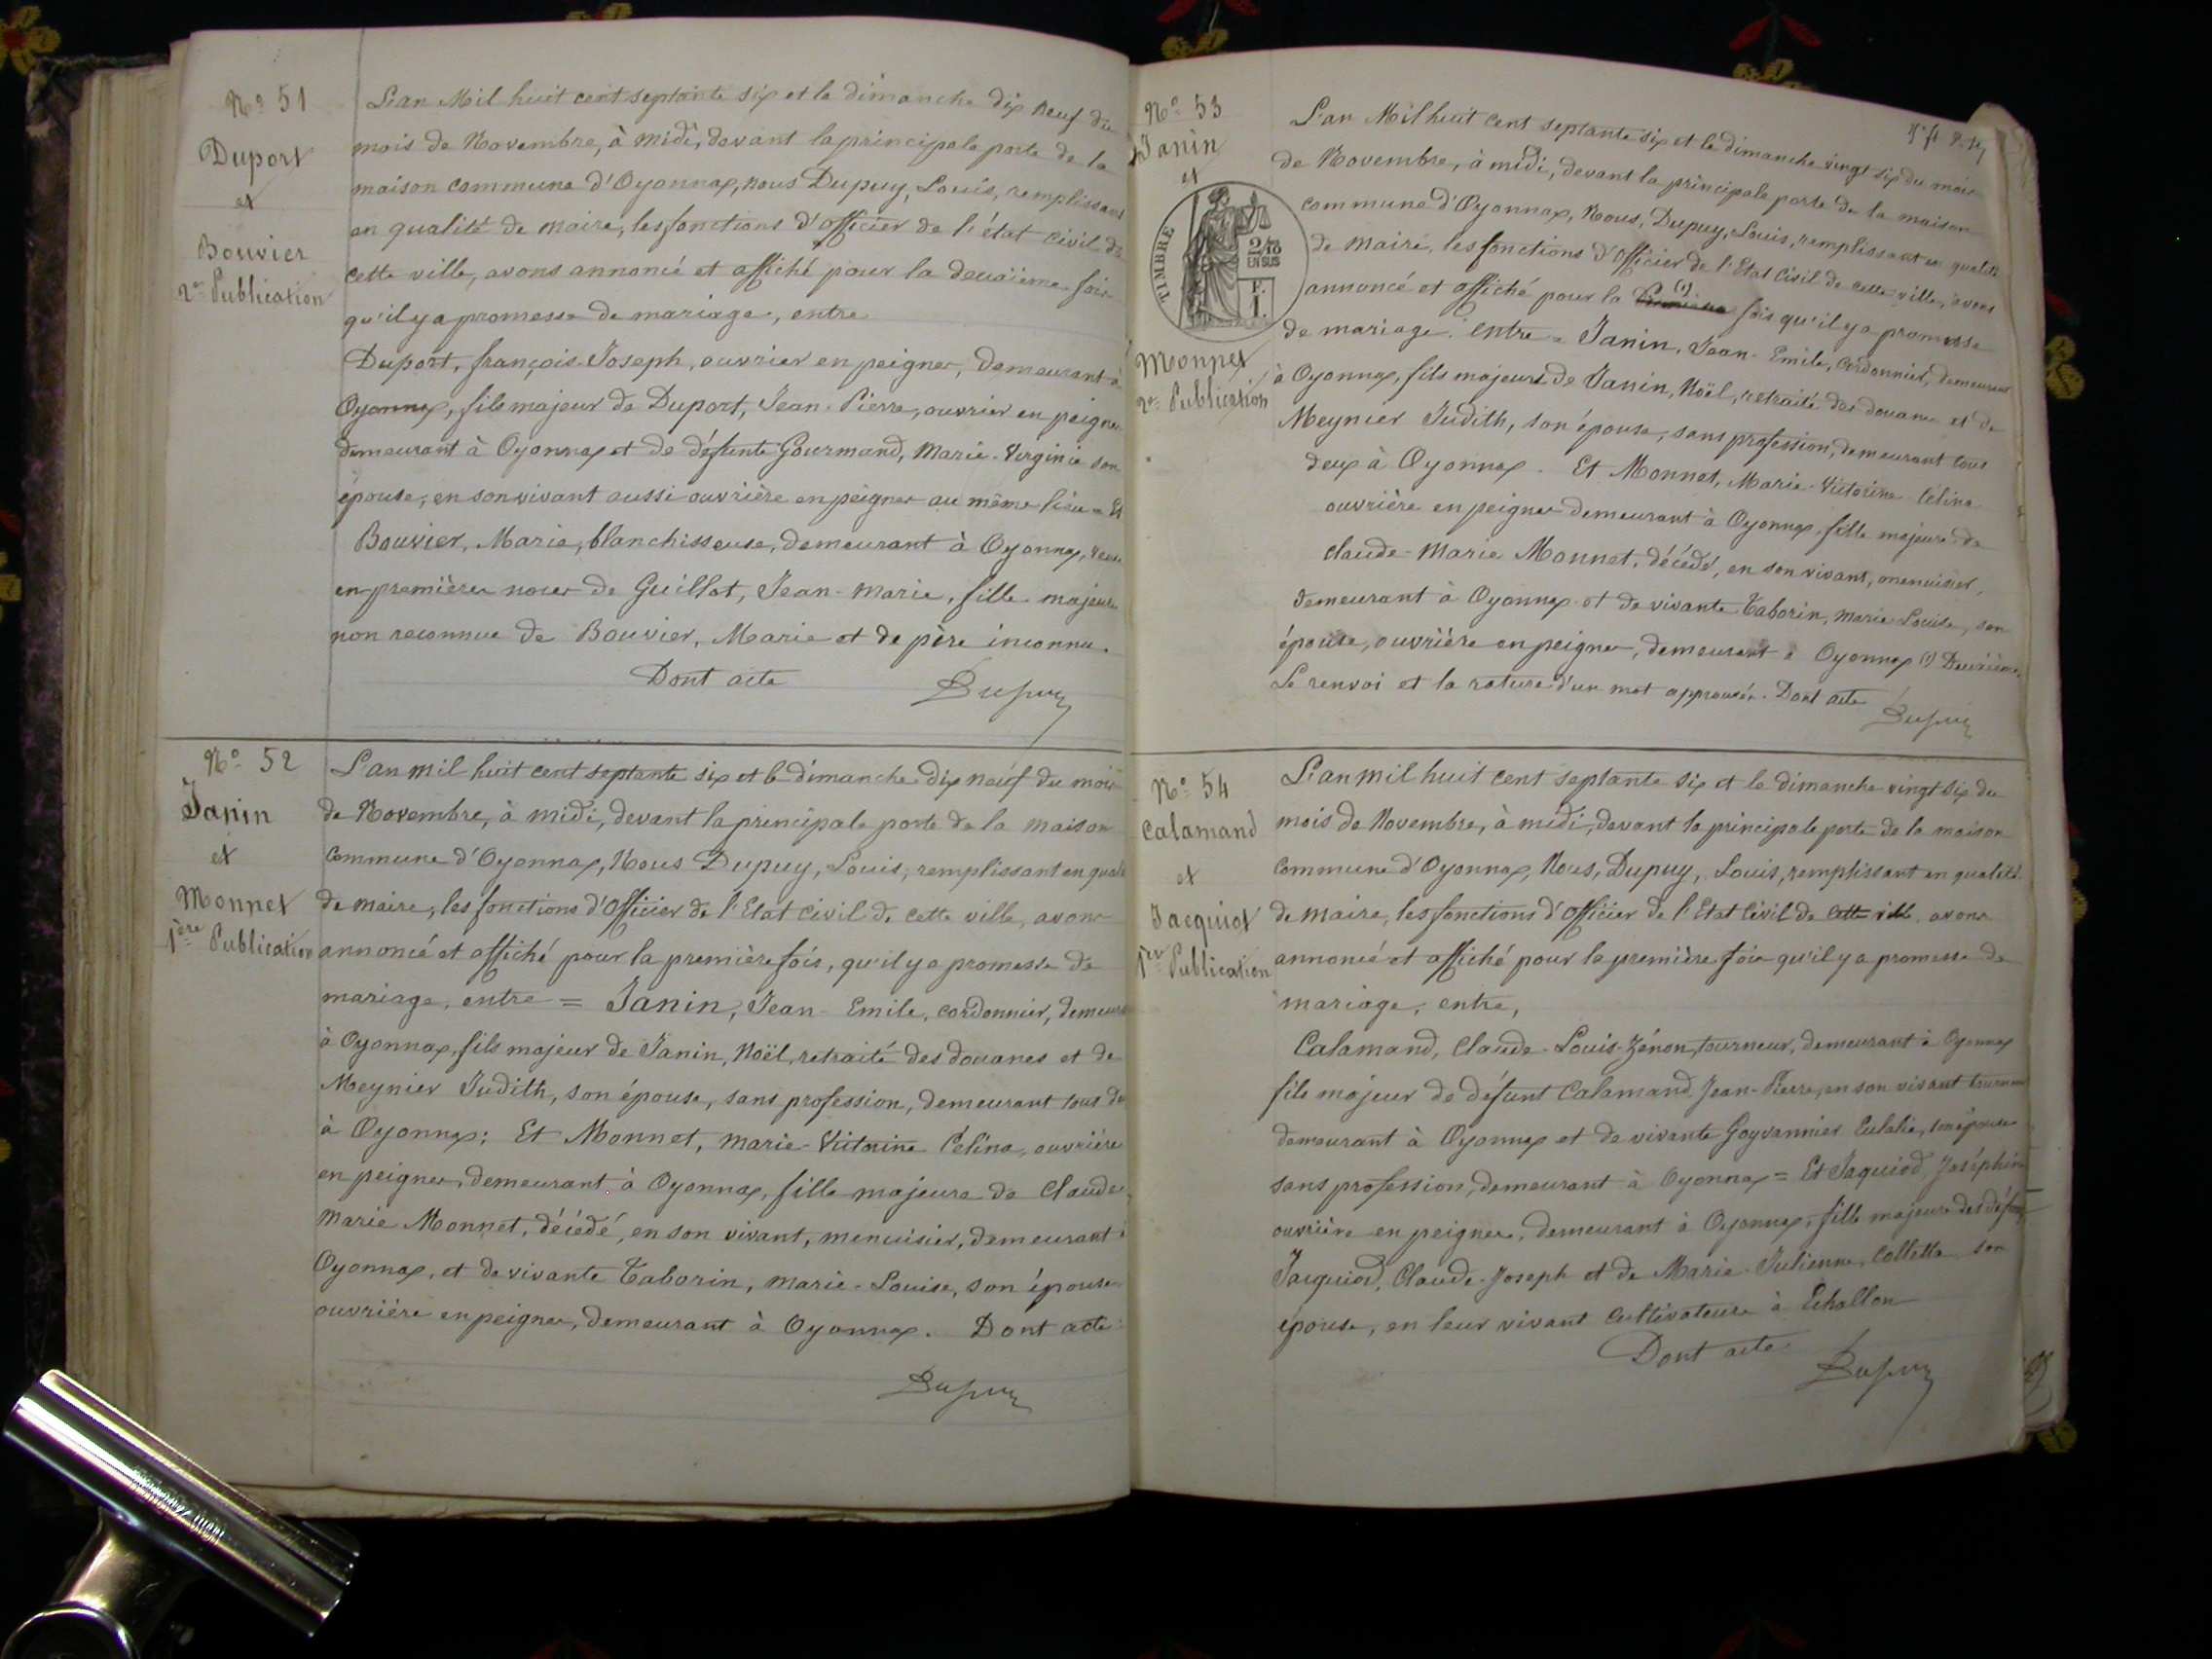 Nº 51
Duport
et
Bouvier
2e Publication
L'an Mil huit cent septante six et le dimanche dix neuf du
mois de Novembre, à midi, devant la principale porte de la
maison commune d'Oyonnax, nous Dupuy, Louis, remplissant
en qualité de maire, les fonctions d'officier de l'état civil de
cette ville, avons annoncé et affiché pour la deuxième fois
qu'il y a promesse de mariage, entre
Duport, françois-Joseph, ouvrier en peignes, demeurant à
Oyonnax, fils majeur de Duport, Jean-Pierre, ouvrier en peignes
demeurant à Oyonnax et de défunte Gourmand, Marie-Virginie son
épouse, en son vivant aussi ouvrière en peignes au même lieu = Et
Bouvier, Marie, blanchisseuse, demeurant à Oyonnax, veuve
en premières noces de Guillot, Jean-Marie, fille majeure
non reconnue de Bouvier, Marie et de père inconnu.
Dont acte
Dupuy
Nº 52
Janin
et
Monnet
1ère Publication
L'an mil huit cent septante six et le dimanche dix neuf du mois
de Novembre, à midi, devant la principale porte de la maison
commune d'Oyonnax, Nous Dupuy, Louis, remplissant en qualité
de maire, les fonctions d'Officier de l'Etat civil de cette ville, avons
annoncé et affiché pour la première fois, qu'il y a promesse de
mariage, entre = Janin, Jean-Emile, cordonnier, demeurant
à Oyonnax, fils majeur de Janin, Noël, retraité des douanes et de
Meynier Judith, son épouse, sans profession, demeurant tous deux
à Oyonnax; Et Monnet, Marie-Victorine Célina, ouvrière
en peignes, demeurant à Oyonnax, fille majeure de Claude
Marie Monnet, décédé, en son vivant, menuisier, demeurant à
Oyonnax, et de vivante Taborin, Marie-Louise, son épouse
ouvrière en peignes, demeurant à Oyonnax. Dont acte
Dupuy
Nº 53
Janin
et
TIMBRE
2/10
EN SUS
F.
1.
Monnet
2e Publication
L'an Mil huit cent septante six et le dimanche vingt six du mois
de Novembre, à midi, devant la principale porte de la maison
commune d'Oyonnax, Nous, Dupuy, Louis, remplissant en qualité
de maire, les fonctions d'Officier de l'Etat Civil de cette ville, avons
annoncé et affiché pour la première (1) fois qu'il y a promesse
de mariage. entre = Janin, Jean-Emile, cordonnier, demeurant
à Oyonnax, fils majeur de Janin, Noël, retraité des douanes et de
Meynier Judith, son épouse, sans profession, demeurant tous
deux à Oyonnax. Et Monnet, Marie-Victorine Célina
ouvrière en peignes demeurant à Oyonnax, fille majeure de
Claude-Marie Monnet, décédé, en son vivant, menuisier,
demeurant à Oyonnax et de vivante Taborin, Marie Louise, son
épouse, ouvrière en peignes, demeurant à Oyonnax (1) Deuxième.
Le renvoi et la rature d'un mot approuvés. Dont acte
Dupuy
Nº 54
Calamand
et
Jacquiod
1ère Publication
L'an mil huit cent septante six et le dimanche vingt six du
mois de Novembre, à midi, devant la principale porte de la maison
commune d'Oyonnax, Nous, Dupuy, Louis, remplissant en qualité
de maire, les fonctions d'Officier de l'Etat Civil de cette ville, avons
annoncé et affiché pour la première fois qu'il y a promesse de
mariage, entre,
Calamand, Claude-Louis-Zénon, tourneur, demeurant à Oyonnax
fils majeur de défunt Calamand Jean-Pierre, en son vivant tourneur
demeurant à Oyonnax et de vivante Goyvannier Eulalie, son épouse
sans profession, demeurant à Oyonnax = Et Jaquiod, Joséphine
ouvrière en peignes, demeurant à Oyonnax, fille majeure des défunts
Jacquiod, Claude-Joseph et de Marie-Julienne, Collette son
épouse, en leur vivant cultivateurs à Echallon
Dont acte
Dupuy